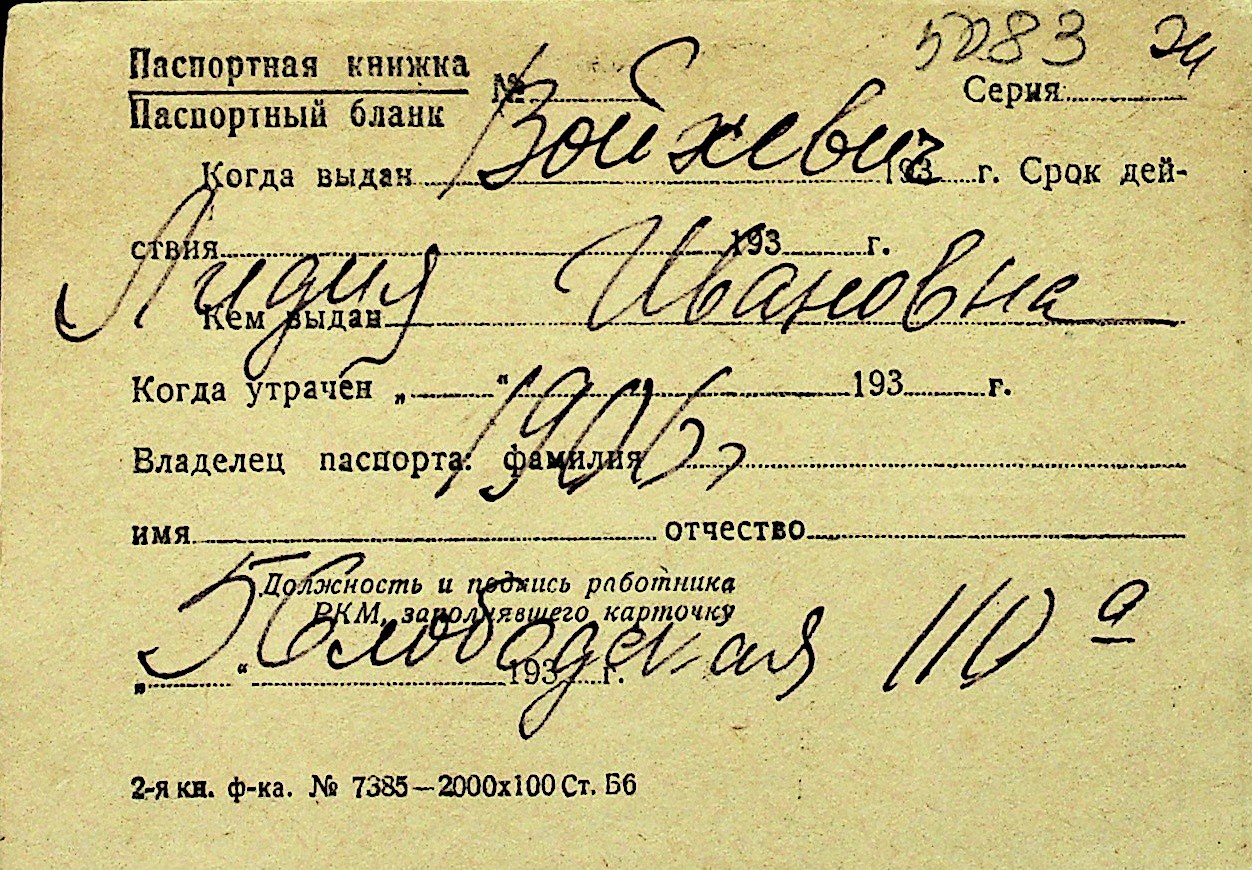 5283 эи
Паспортная книжка
Паспортный бланк
№ Серия
Войхевич
Когда выдан 193 г. Срок дей-
ствия 193 г.
Лидия Ивановна
Кем выдан
Когда утрачен „ “ 193 г.
1906 г
Владелец паспорта: фамилия
имя отчество
Должность и подпись работника
РКМ, заполнявшего карточку
5 Слободская 110 а
„ “ 193 г.
2-я кн. ф-ка. № 7385—2000х100 Ст. Б6